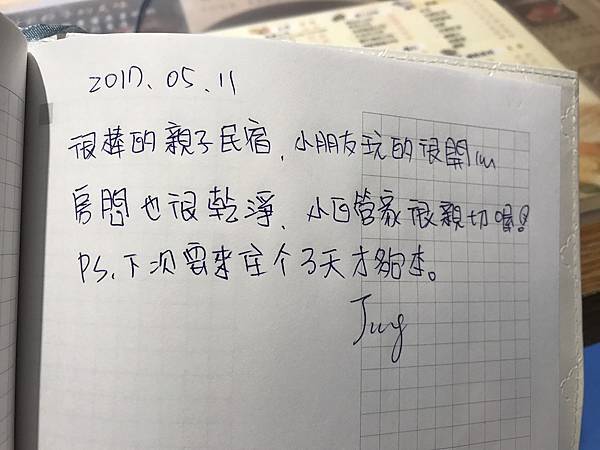 2017.05.11
很棒的親子民宿，小朋友玩的很開心
房間也很乾淨，小管家很親切喔!
PS.下次要來住个3天才夠本。
Jung